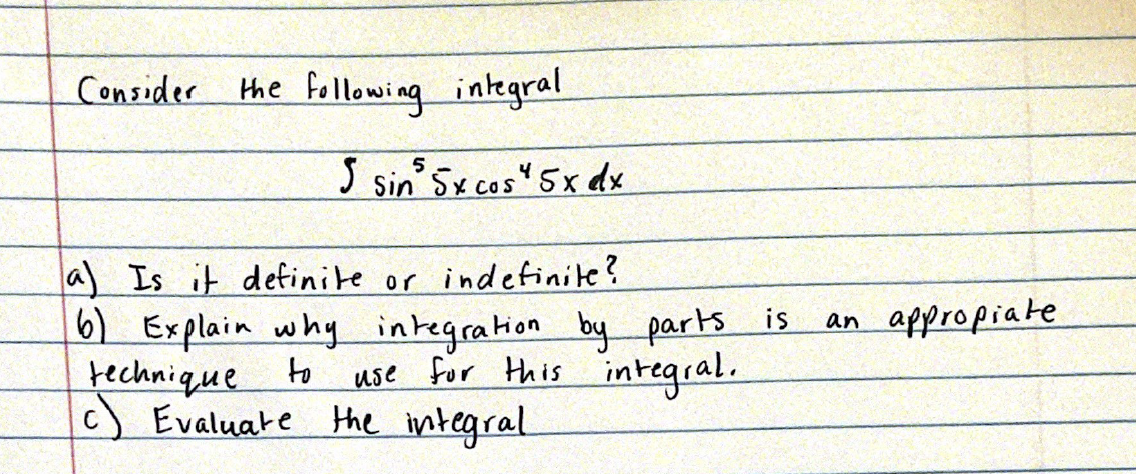 Consider the following integral
∫ sin⁵ 5x cos⁴ 5x dx
a) Is it definite or indefinite?
b) Explain why integration by parts is an appropiate
technique to use for this integral.
c) Evaluate the integral